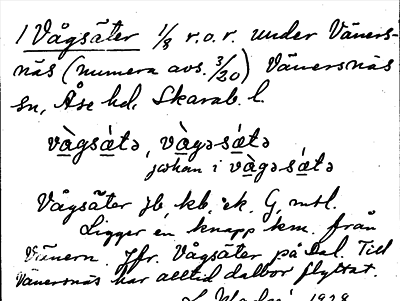 1 Vågsäter 1/8 r.o.r. under Väners-
näs (numera avs. 3/20) Vänersnäs
sn, Åse hd, Skarab. l.
vàgsátə, vàgəsátə
johan i vàgəsátə
Vågsäter jb, kb, ek. G, mtl.
Ligger en knapp km. från
Vänern. Jfr. Vågsäter på Dal. Till
Vänersnäs har alltid dalbor flyttat.
1928